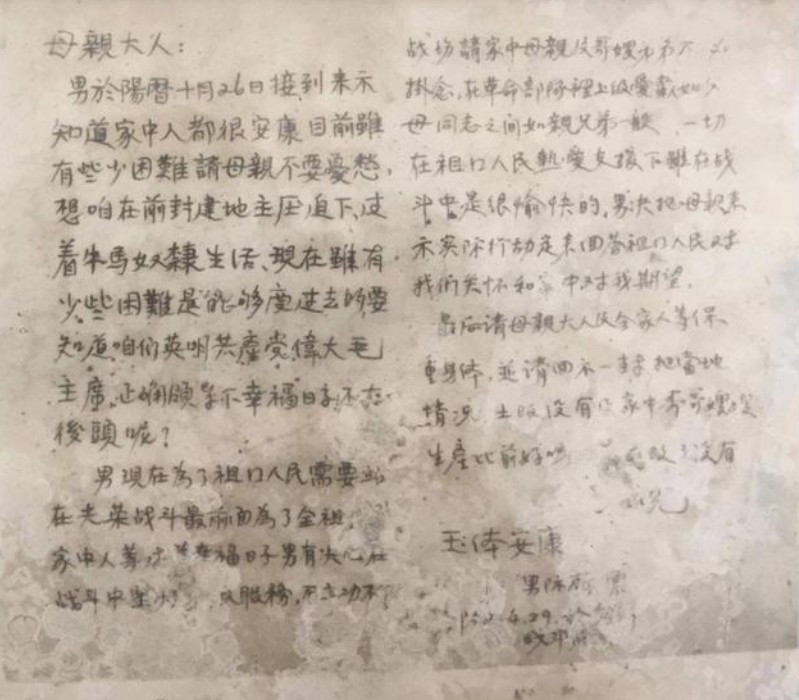 母親大人：
男於陽曆十月26日接到来示
知道家中人都很安康目前雖
有些少困難請母親不要憂愁，
想咱在前封建地主压迫下，过
着牛馬奴隸生活、現在雖有
少些困難是能够度过去的要
知道咱们英明共產党偉大毛
主席，正确領导下幸福日子还在
後頭呢？
男現在為了祖口人民需要站
在光荣战斗最前面為了全祖
家中人等过幸福日子男有决心在
战斗中 立功不
战场請家中母親及哥嫂弟弟不必
掛念，在革命部隊裡上级爱戴如父
母同志之间如親兄弟一般，一切
在祖口人民熱愛支援下雖在战
斗中是很愉快的，男决把母親来
示实际行动是来回答祖口人民对
我们关怀和家中对我期望。
最后請母親大人及全家人等保
重身体，並請回示一封把當地
情况 土改没有 家中哥哥嫂嫂
生產比前好吧 没有
祝
玉体安康
男
4.29.